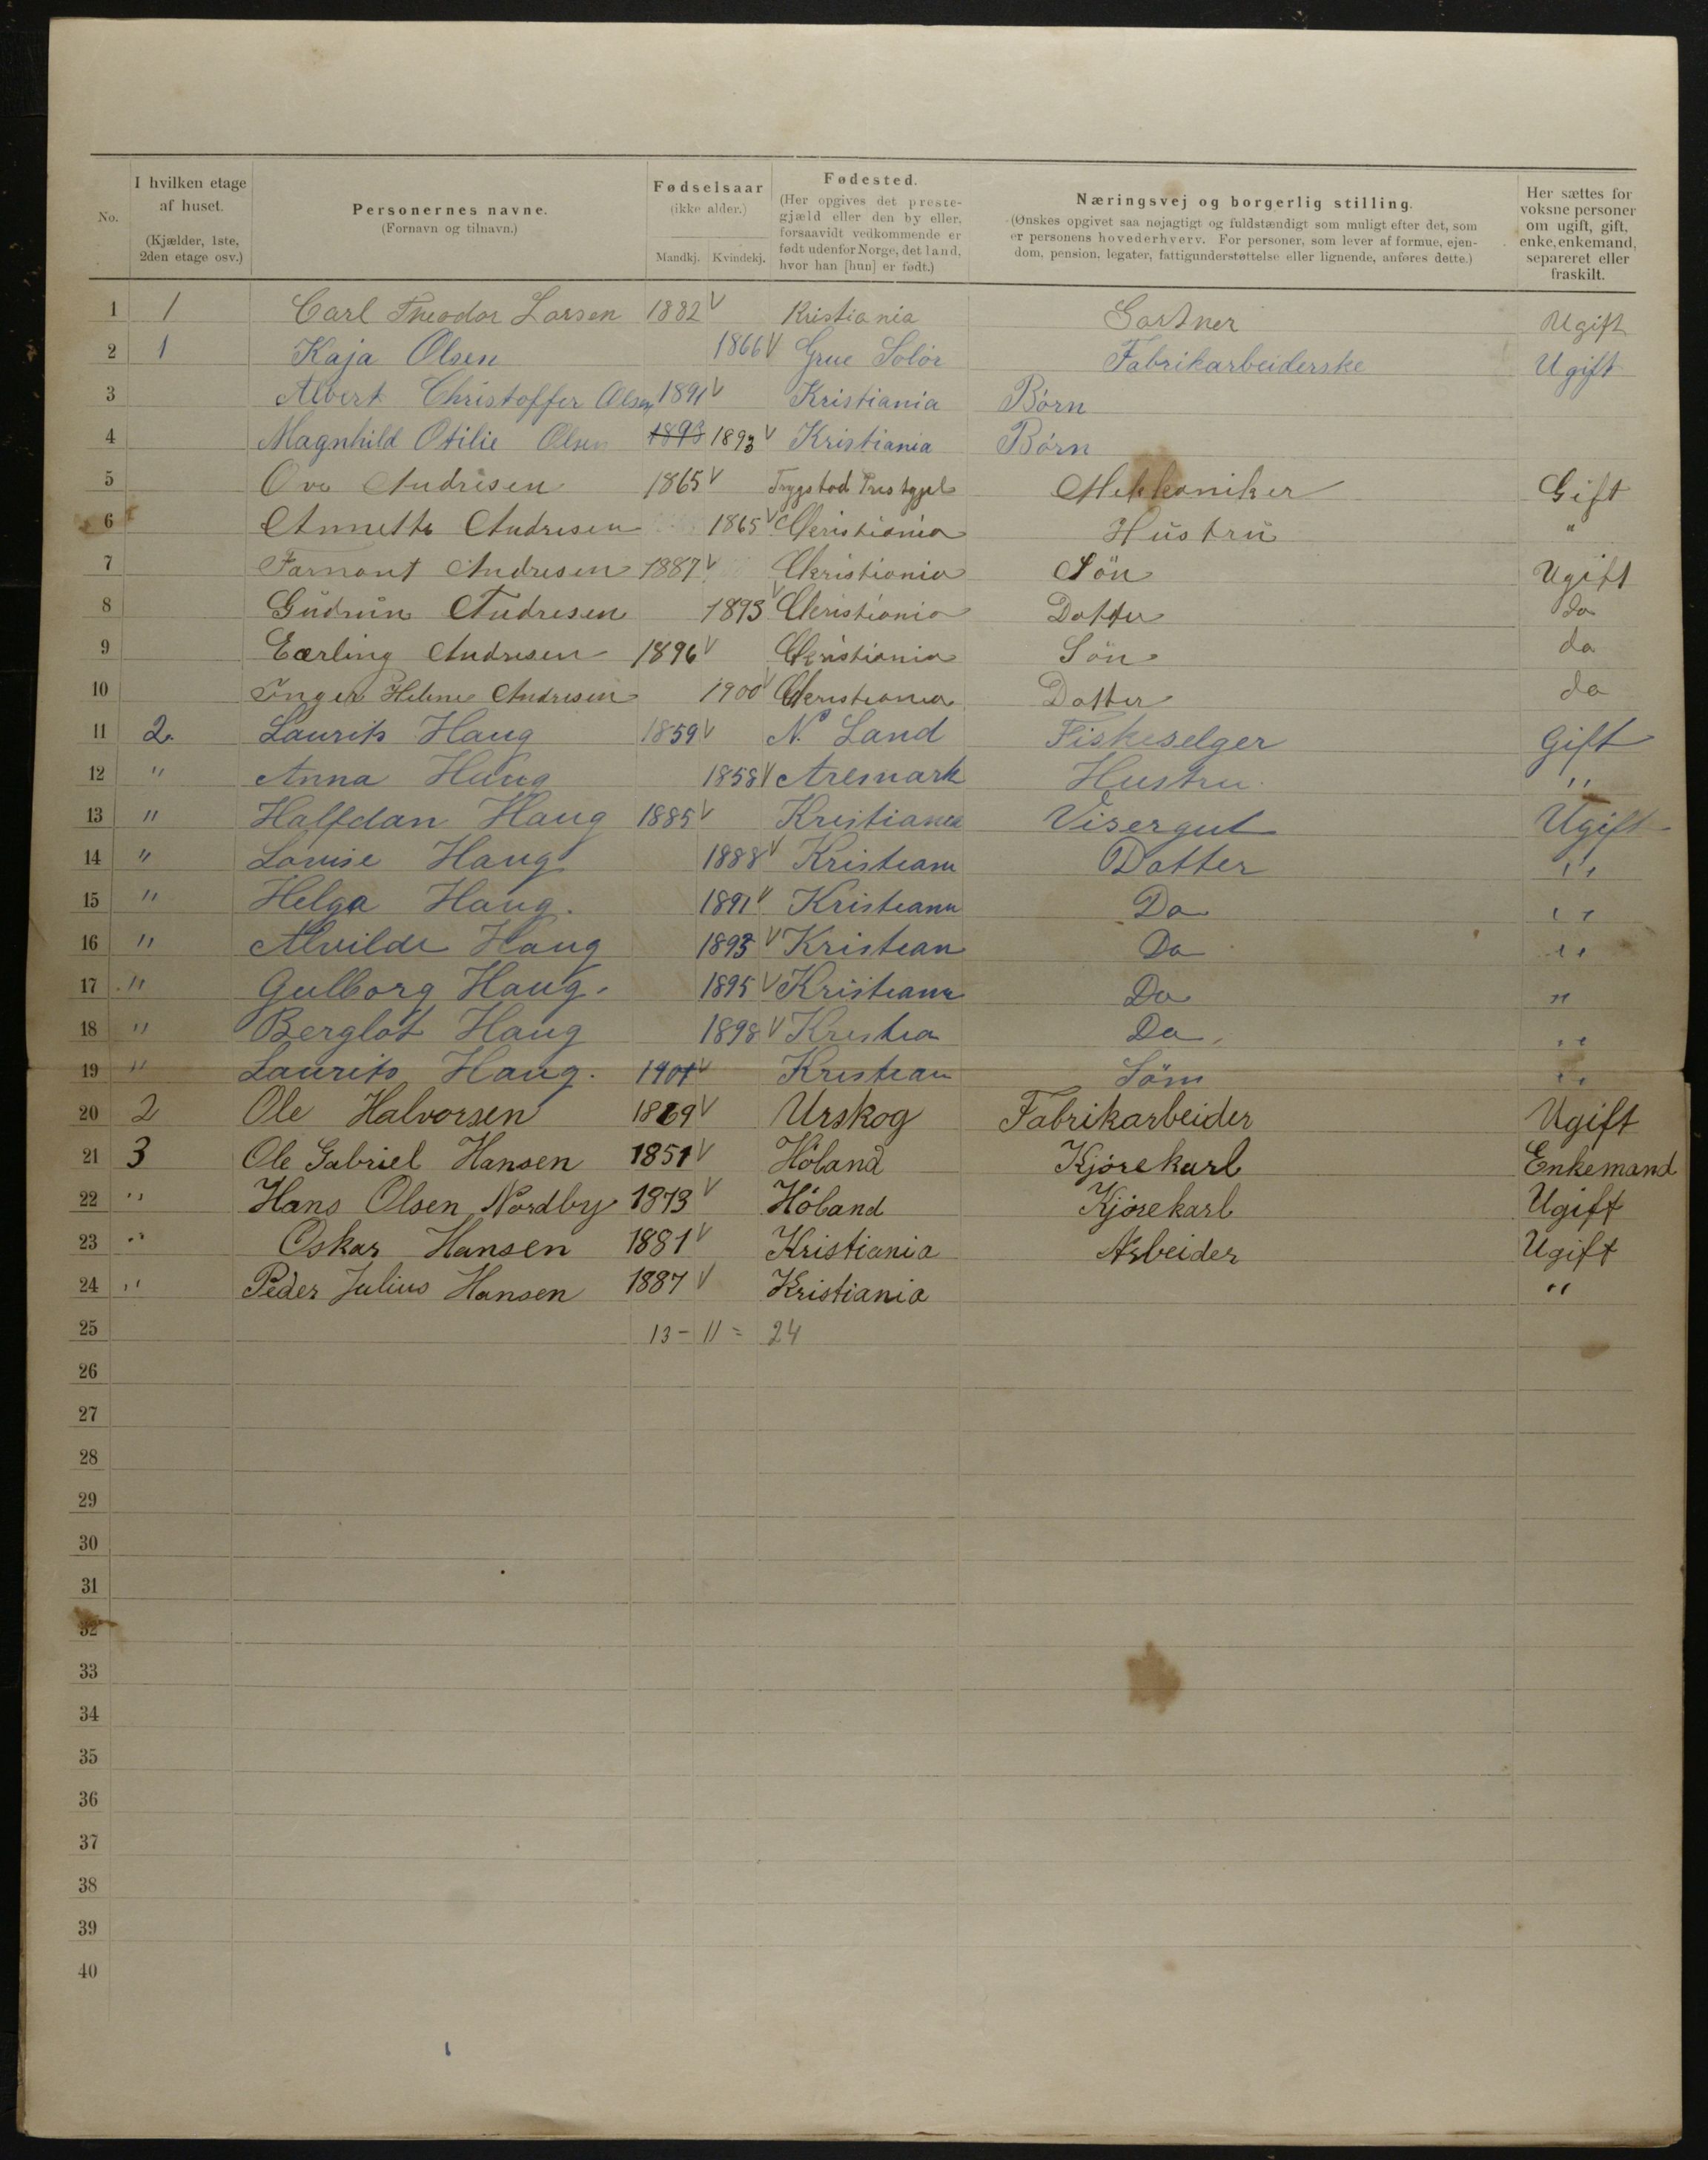 No.
I hvilken etage af huset. (Kjælder, 1ste, 2den etage osv.)
Personernes navne. (Fornavn og tilnavn.)
Fødselsaar (ikke alder.) Mandkj. Kvindekj.
Fødested. (Her opgives det prestegjæld eller den by eller, forsaavidt vedkommende er født udenfor Norge, det land, hvor han [hun] er født.)
Næringsvej og borgerlig stilling. (Ønskes opgivet saa nøjagtigt og fuldstændigt som muligt efter det, som er personens hovederhverv. For personer, som lever af formue, ejendom, pension, legater, fattigunderstøttelse eller lignende, anføres dette.)
Her sættes for voksne personer om ugift, gift, enke, enkemand, separeret eller fraskilt.
1 1 Carl Theodor Larsen 1882 Kristiania Gartner Ugift
2 1 Kaja Olsen 1866 Grue Solör Fabrikarbeiderske Ugift
3 Albert Christoffer Olsen 1891 Kristiania Börn
4 Magnhild Otilie Olsen 1893 1893 Kristiania Börn
5 Ove Andresen 1865 Trygstad Prestgjel Mekkaniker Gift
6 Annette Andresen 1865 Christiania Hustru "
7 Farnant Andresen 1887 Christiania Sön Ugift
8 Gudrun Andresen 1893 Christiania Datter do
9 Eærling Andresen 1896 Christiania Sön do
10 Inger Helene Andresen 1900 Christiania Datter do
11 2. Laurits Haug 1859 N. Land Fiskeselger Gift
12 " Anna Haug 1858 Aremark Hustru "
13 " Halfdan Haug 1885 Kristiania Visergut Ugift
14 " Louise Haug 1888 Kristiani Datter "
15 " Helga Haug. 1891 Kristiani Do "
16 " Alvilde Haug 1893 Kristian Do "
17 " Gulborg Haug. 1895 Kristiani Do "
18 " Berglot Haug 1898 Kristia Do "
19 " Laurits Haug. 1901 Kristian Sön "
20 2 Ole Halvorsen 1869 Urskog Fabrikarbeider Ugift
21 3 Ole Gabriel Hansen 1851 Höland Kjörekarl Enkemand
22 " Hans Olsen Nordby 1873 Höland Kjörekarl Ugift
23 " Oskar Hansen 1881 Kristiania Arbeider Ugift
24 " Peder Julius Hansen 1887 Kristiania "
25 13 - 11 = 24
26
27
28
29
30
31
32
33
34
35
36
37
38
39
40